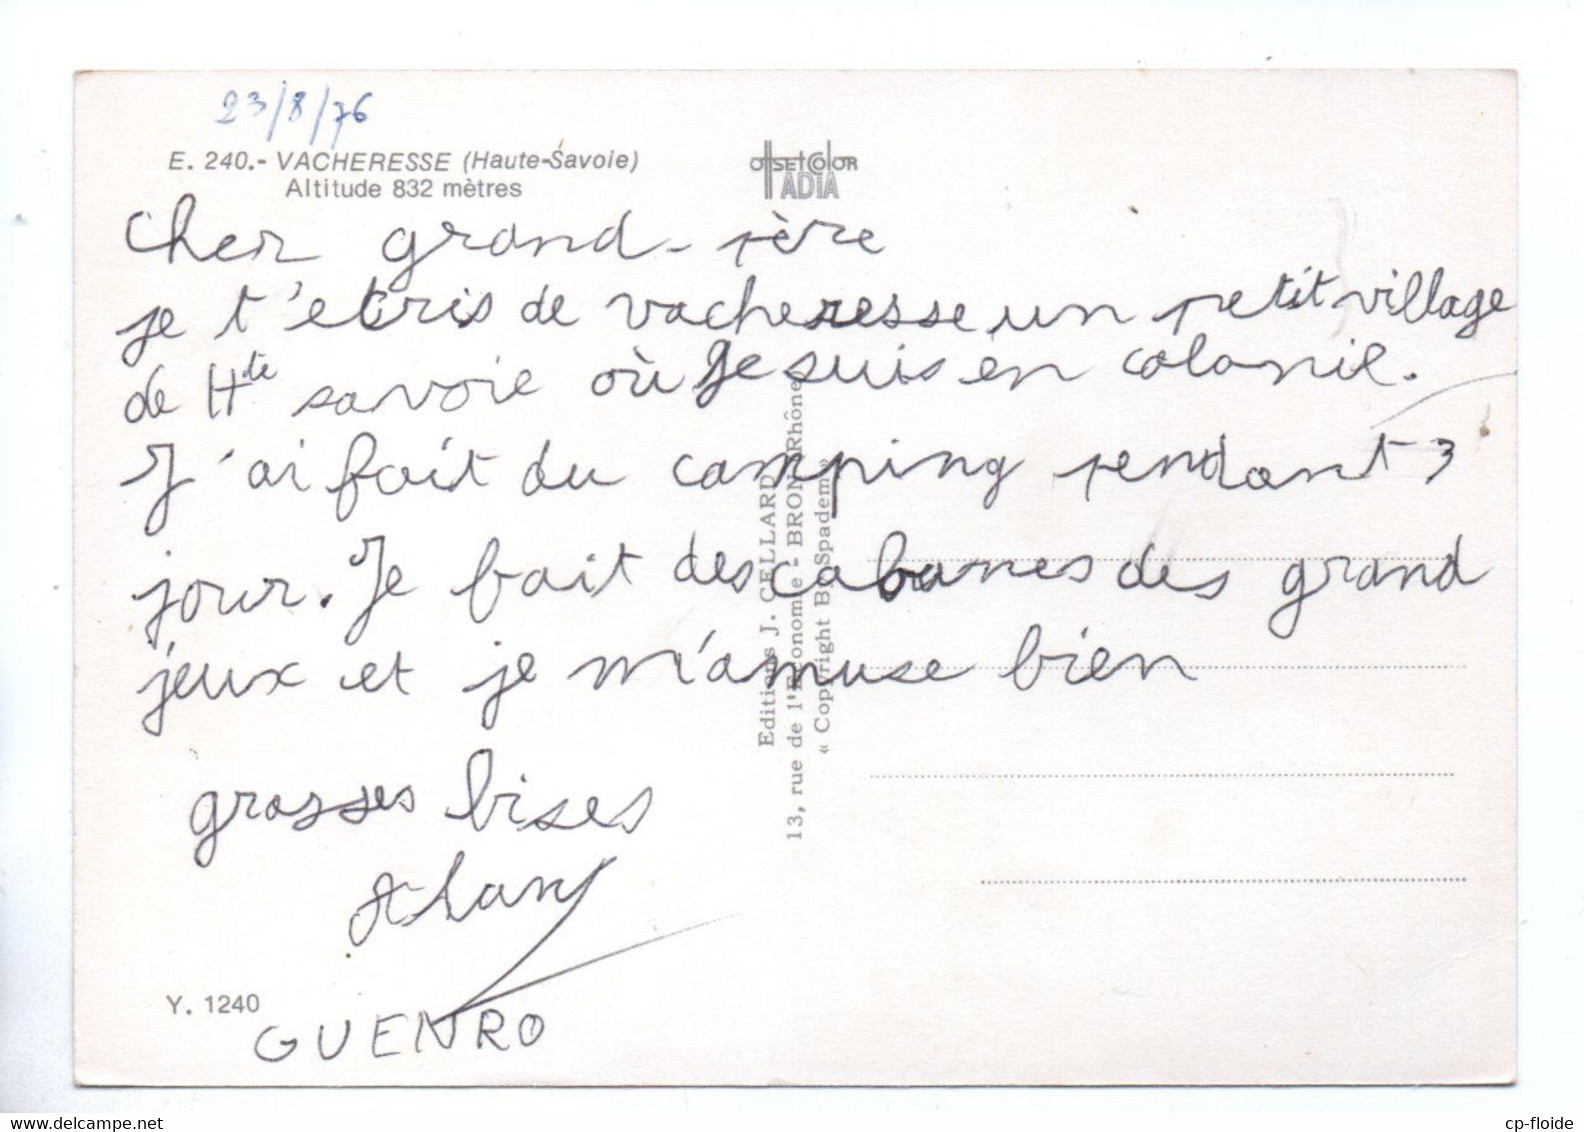 23/8/76
E. 240.- VACHERESSE (Haute-Savoie)
Altitude 832 mètres
OffSETCOLOR
IADIA
Cher grand-père
je t'ecris de vacheresse un petit village
de Hte savoie où Je suis en colonie.
J'ai fait du camping pendant 3
jour. Je fait des cabanes des grand
jeux et je m'amuse bien
grosses bises
Alan
GUENRO
Y. 1240
Editions J. CELLARD
13, rue de l'Economie - BRON (Rhône)
« Copyright By Spadem »
cp-floide